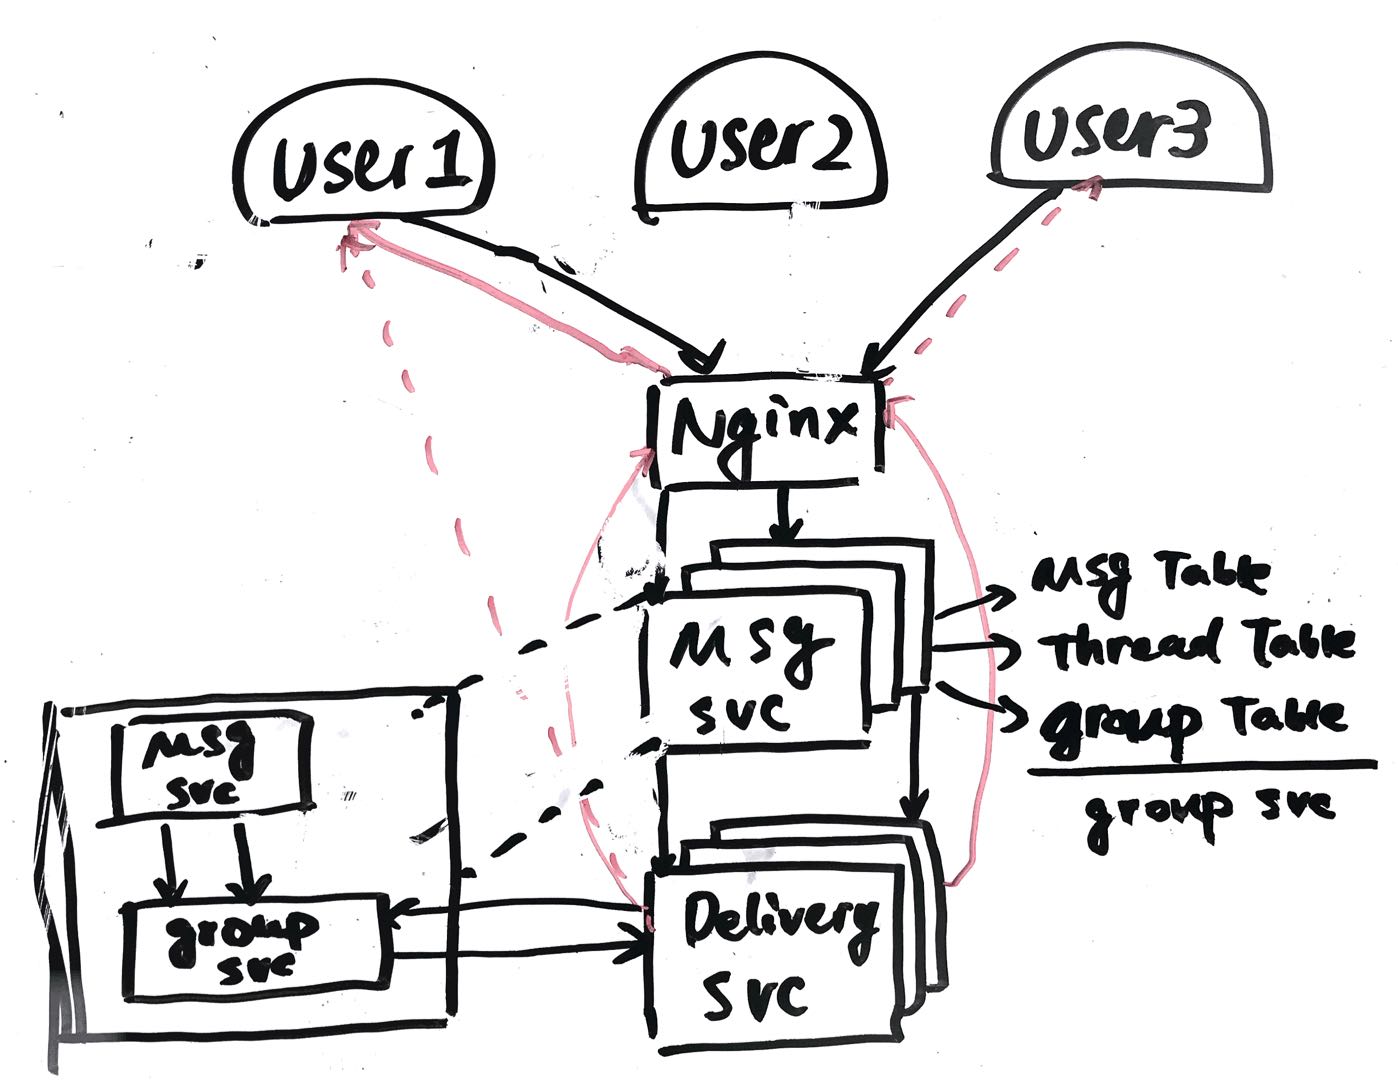 User1
User2
User3
Nginx
Msg Table
Thread Table
group Table
group svc
Msg
svc
Msg
svc
group
svc
Delivery
svc